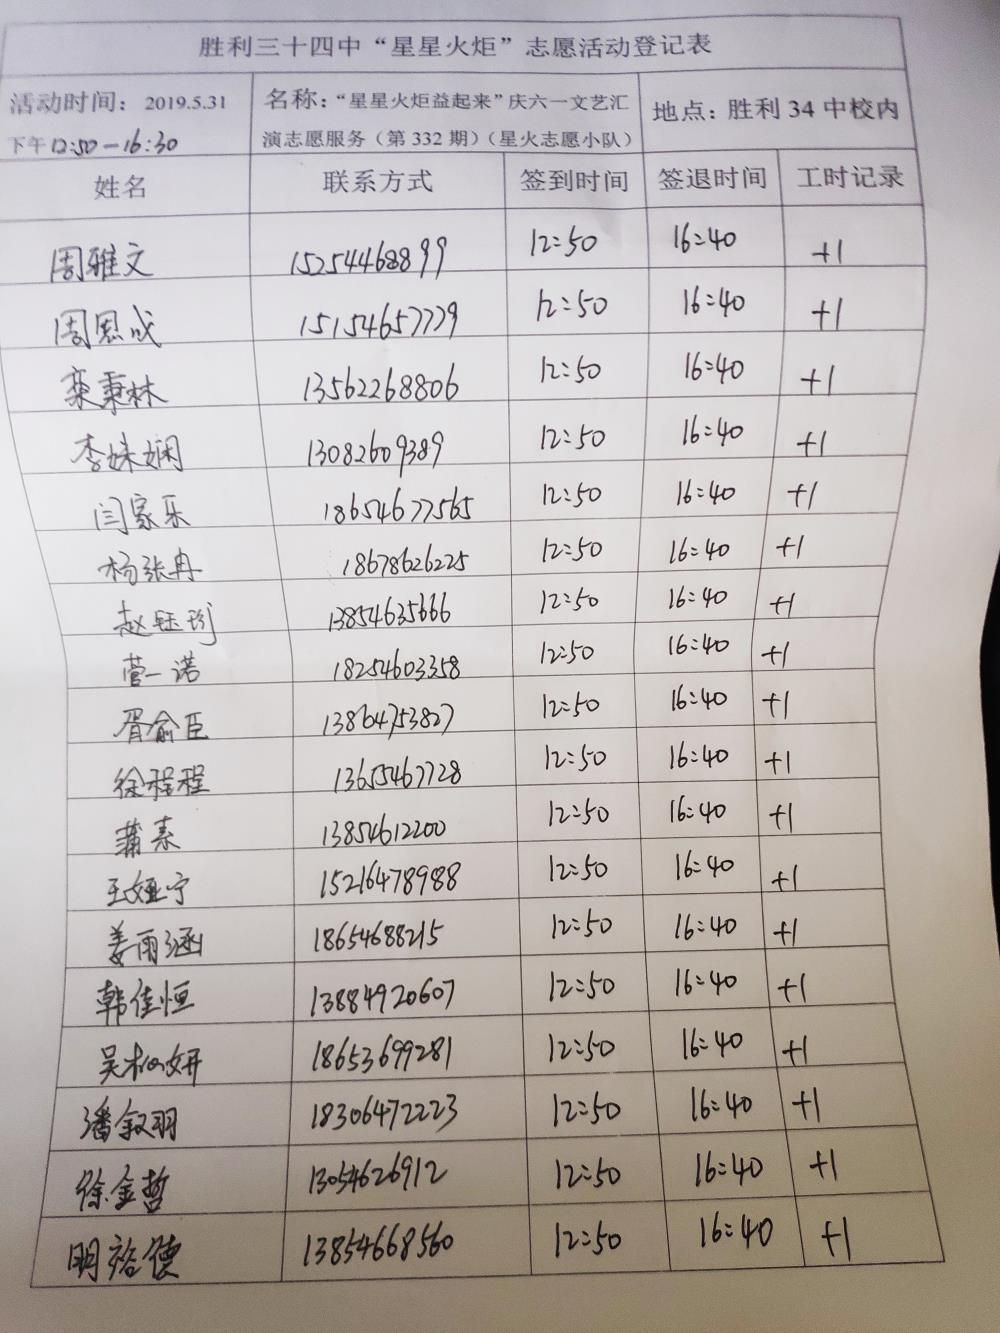 胜利三十四中“星星火炬”志愿活动登记表
活动时间：2019.5.31 名称：“星星火炬益起来”庆六一文艺汇 地点：胜利34中校内
下午12:50-16:30 演志愿服务（第332期）（星火志愿小队）
姓名 联系方式 签到时间 签退时间 工时记录
周雅文 15254468899 12:50 16:40 +1
周恩成 15154657779 12:50 16:40 +1
栾秉林 13562268806 12:50 16:40 +1
李姝娴 13082609389 12:50 16:40 +1
闫家乐 18654677565 12:50 16:40 +1
杨张冉 18678626225 12:50 16:40 +1
赵钰珂 13854635666 12:50 16:40 +1
菅一诺 18254603358 12:50 16:40 +1
胥俞臣 13864753827 12:50 16:40 +1
徐程程 13655467728 12:50 16:40 +1
蒲素 13854612200 12:50 16:40 +1
王娅宁 15216478988 12:50 16:40 +1
姜雨涵 18654688215 12:50 16:40 +1
韩佳恒 13884920607 12:50 16:40 +1
吴松妍 18653699281 12:50 16:40 +1
潘叙羽 18306472223 12:50 16:40 +1
徐金哲 13054626912 12:50 16:40 +1
明裕德 13854668560 12:50 16:40 +1